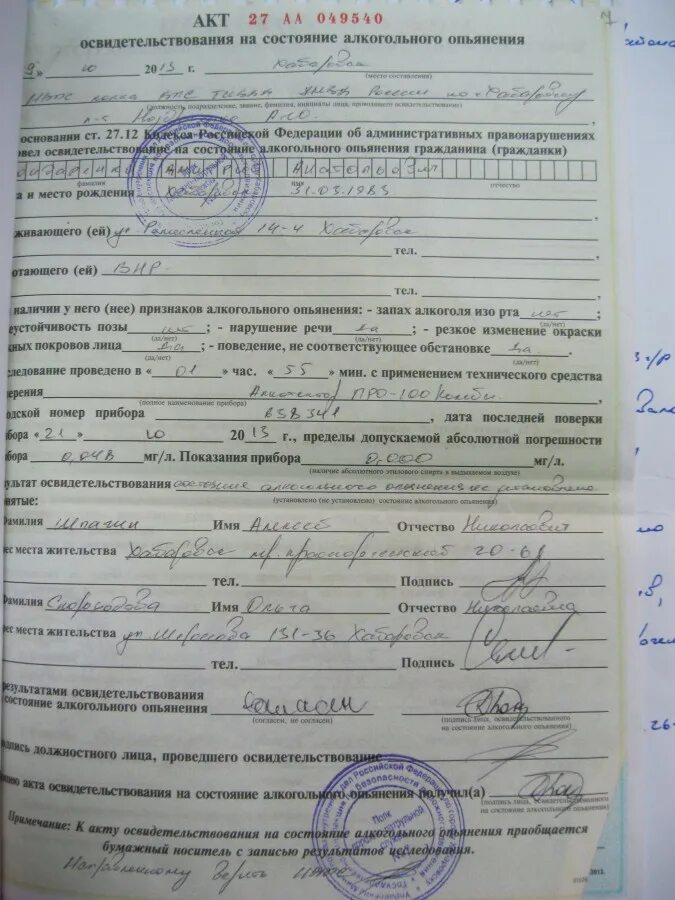 АКТ 27 АА 049540
освидетельствования на состояние алкогольного опьянения
9 » 10 2013 г. Хабаровск
(место составления)
ИДПС полка ДПС ГИБДД УМВД России по г. Хабаровску
(должность подразделение, звание, фамилия, инициалы лица, проводящего освидетельствование)
основании ст. 27.12 Кодекса Российской Федерации об административных правонарушениях
овел освидетельствование на состояние алкогольного опьянения гражданина (гражданки)
Анатольевич
фамилия имя отчество
а и место рождения Хабаровск 31.03.1983
живающего (ей) ул 14-4 Хабаровск
тел.
отающего (ей) ВНР
тел.
наличии у него (нее) признаков алкогольного опьянения: - запах алкоголя изо рта нет ;
(да/нет)
еустойчивость позы нет ; - нарушение речи да ; - резкое изменение окраски
(да/нет) (да/нет)
жных покровов лица да ; - поведение, не соответствующее обстановке да .
(да/нет) (да/нет)
следование проведено в « 01 » час. « 55 » мин. с применением технического средства
мерения Алкотектор ПРО-100 Комби
(полное наименование прибора)
одской номер прибора 638341 , дата последней поверки
бора « 21 » 10 2013 г., пределы допускаемой абсолютной погрешности
бора 0,048 мг/л. Показания прибора 0,000 мг/л.
(наличие абсолютного этилового спирта в выдыхаемом воздухе)
ультат освидетельствования состояние алкогольного опьянения не установлено
(установлено (не установлено) состояние алкогольного опьянения)
нятые:
Фамилия Шпагин Имя Алексей Отчество Николаевич
рес места жительства Хабаровск пр. 20-61
тел. Подпись
Фамилия Имя Ольга Отчество Николаевна
рес места жительства ул. Шеронова 131-36 Хабаровск
тел. Подпись
результатами освидетельствования
состояние алкогольного опьянения согласен
(согласен, не согласен) (подпись лица, освидетельствованного
на состояние алкогольного опьянения)
дпись должностного лица, проведшего освидетельствование
пию акта освидетельствования на состояние алкогольного опьянения получил(а)
(подпись лица, освидетельствованного
на состояние алкогольного опьянения)
Примечание: К акту освидетельствования на состояние алкогольного опьянения приобщается
бумажный носитель с записью результатов исследования.
Направленному верить